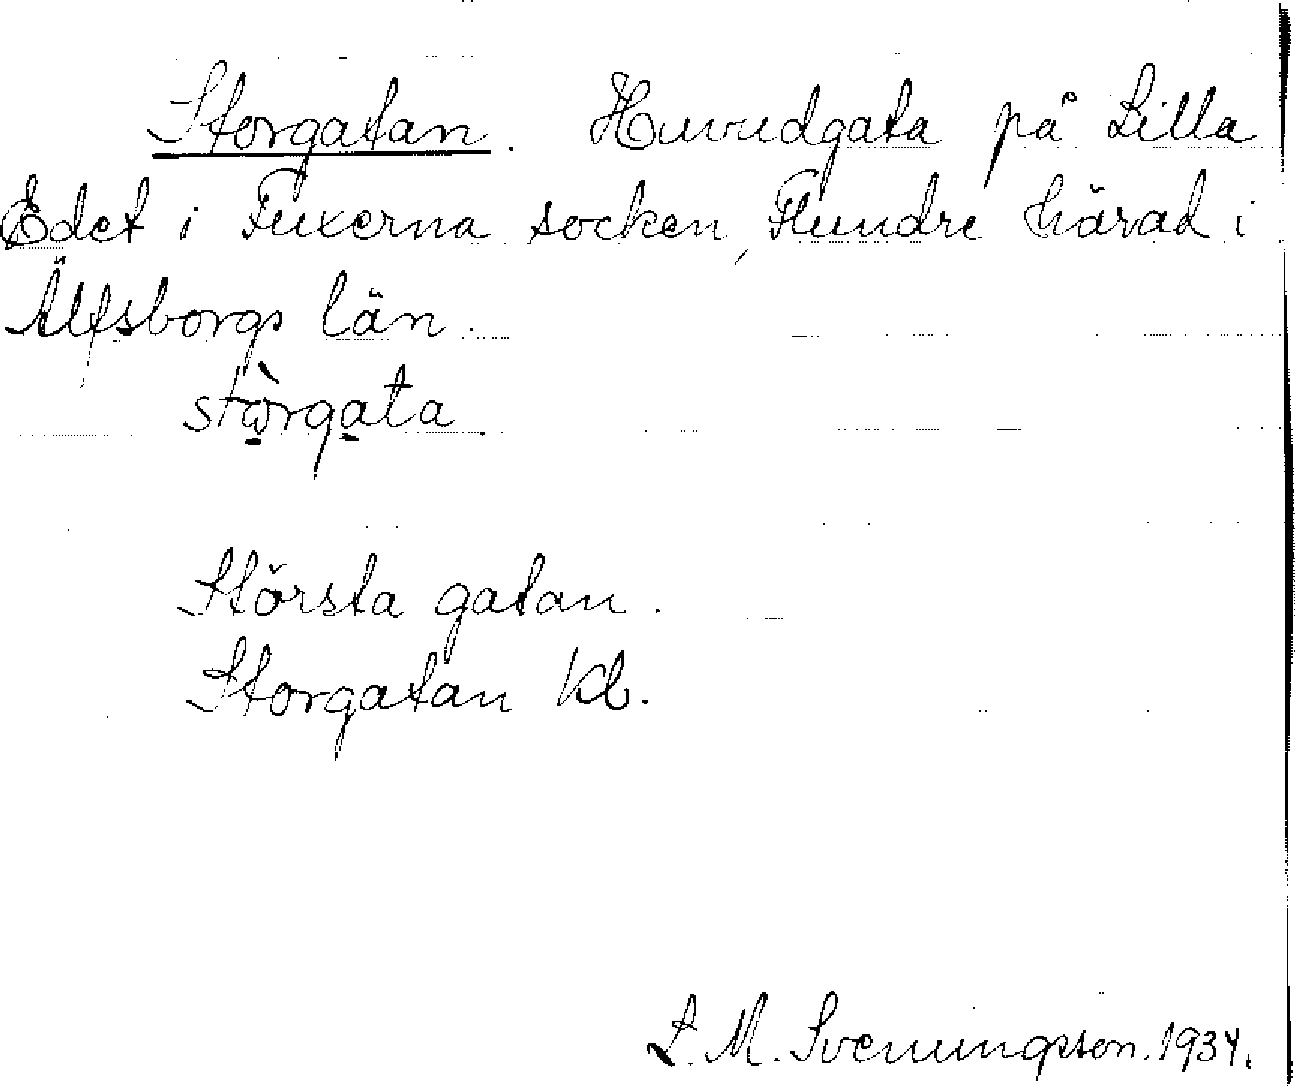 Storgatan. Huvudgata på Lilla
Edet i Fuxerna socken, Flundre härad i
Älfsborgs län.
stòrgata
Största gatan.
Storgatan kb.
L. M. Svenningsson. 1934.